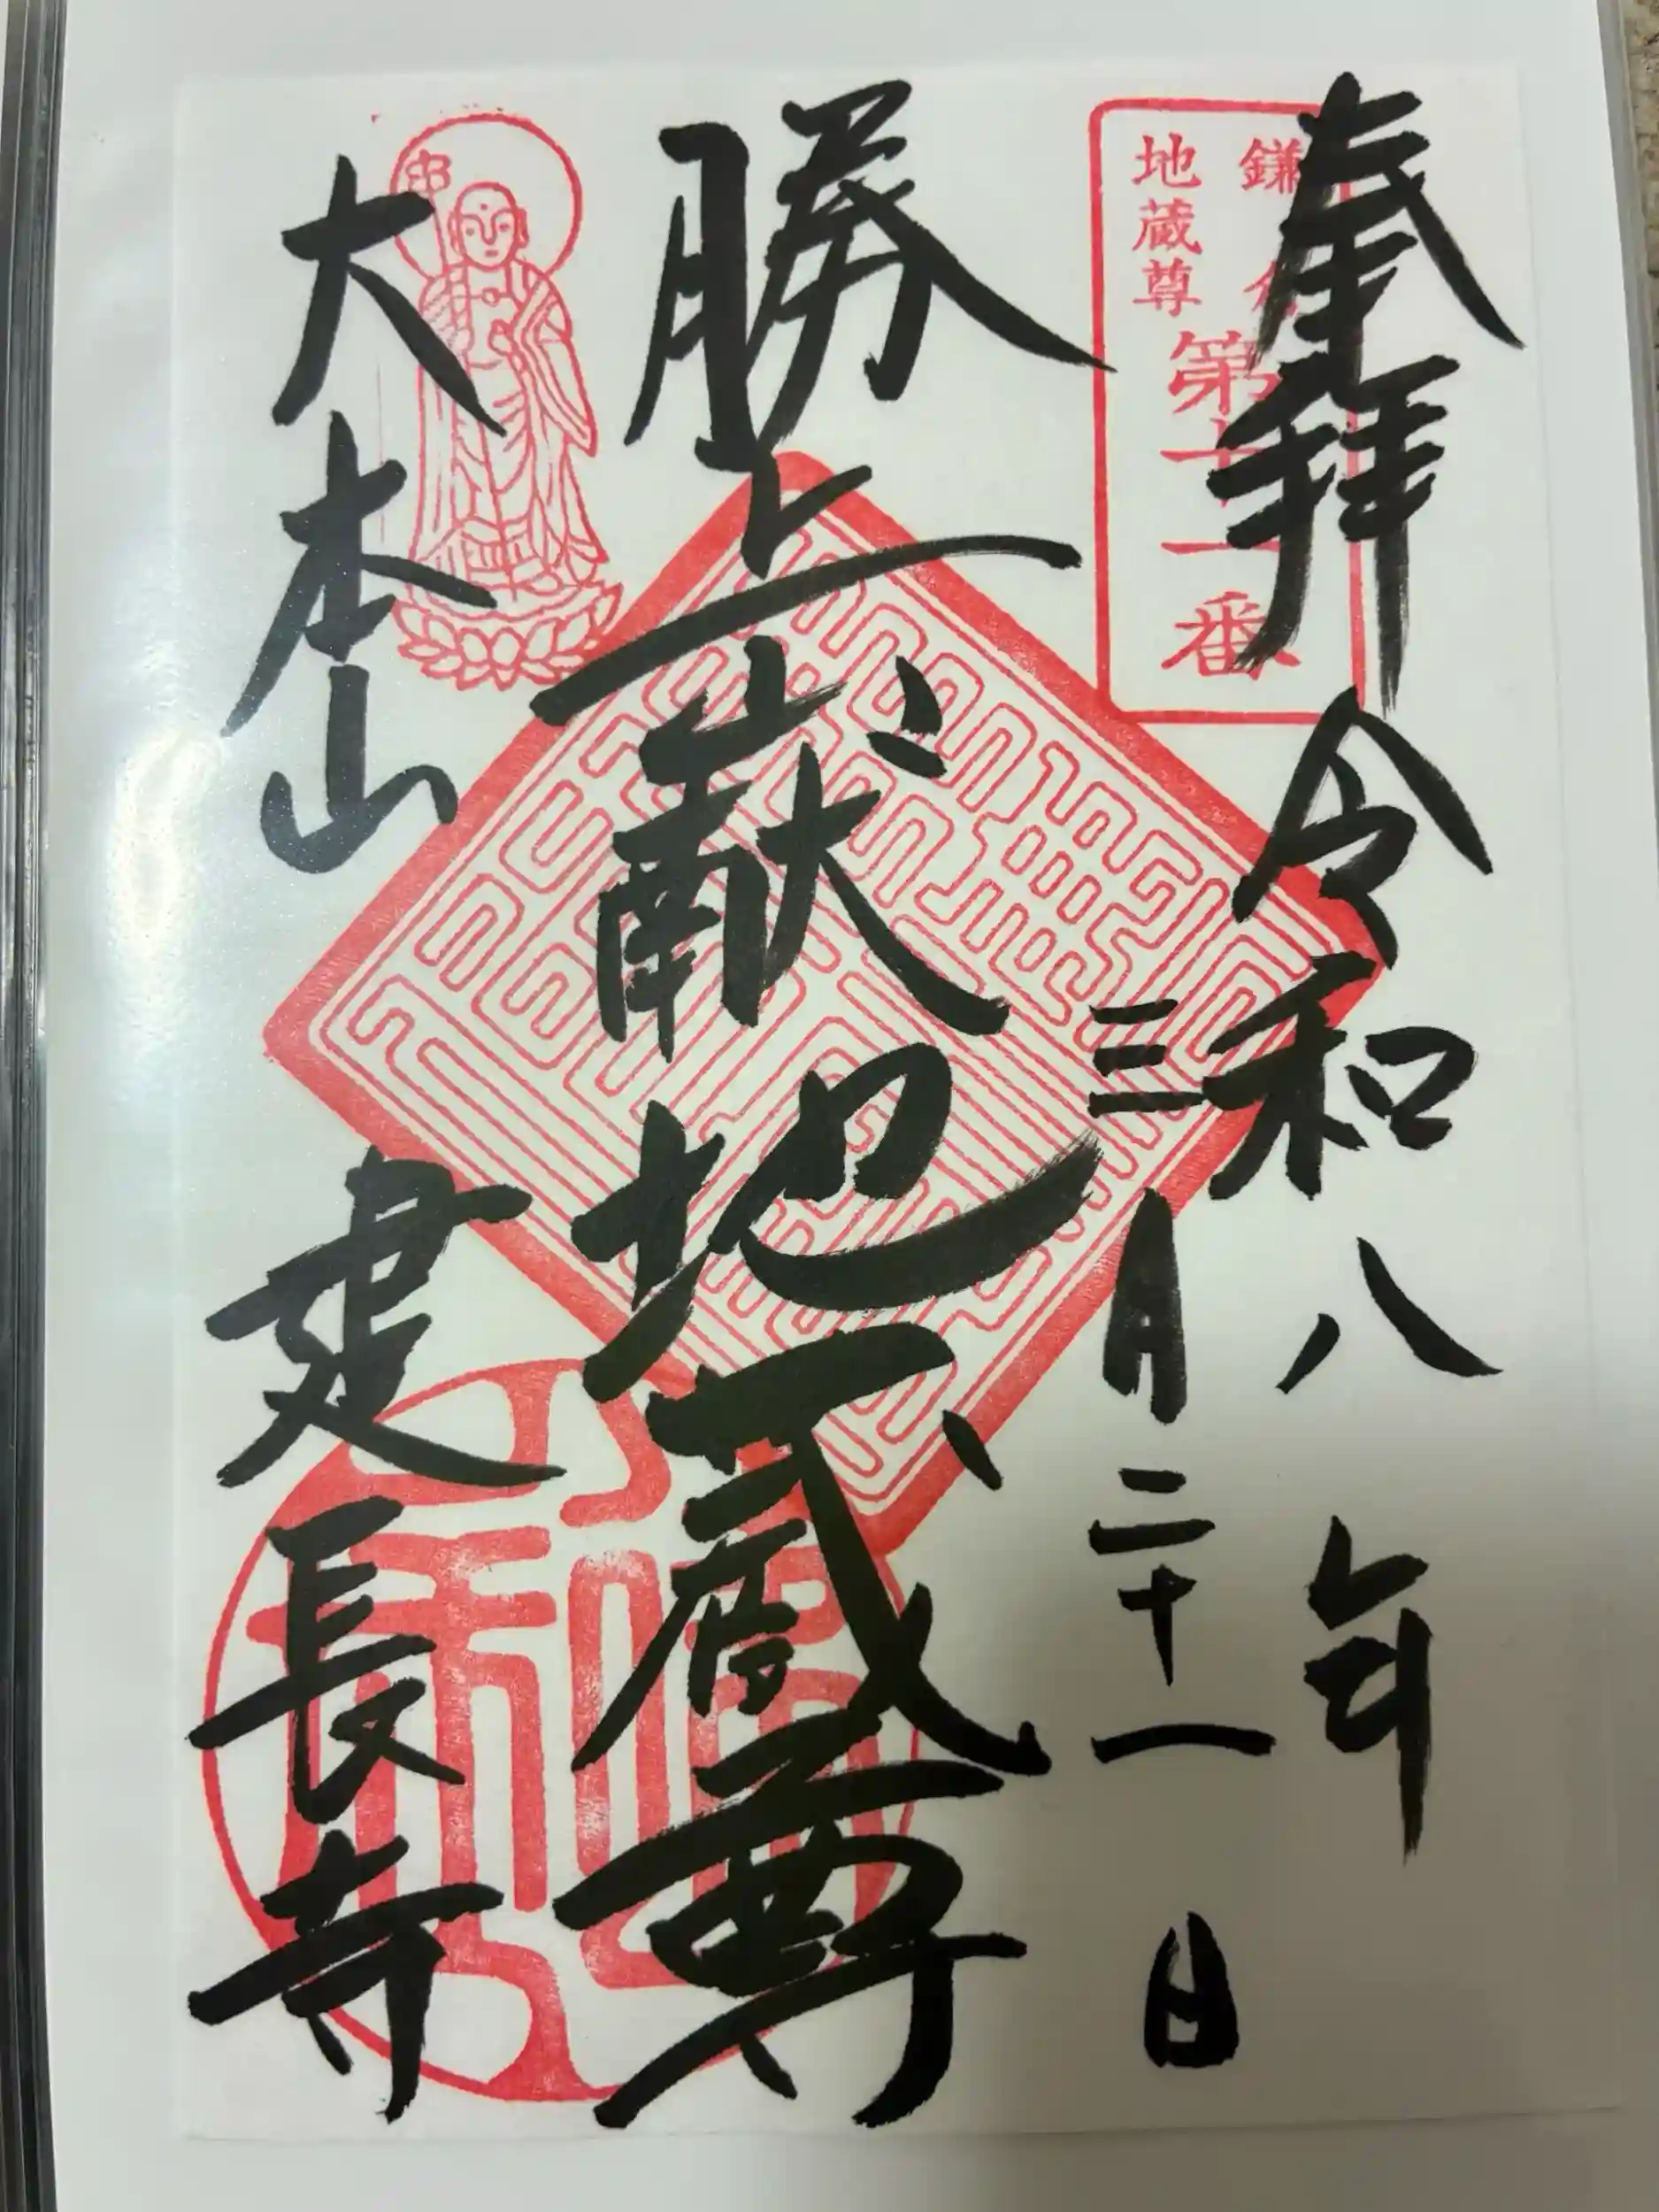 奉拝 令和八年
三月二十一日
鎌倉
地蔵尊
第十一番
勝上献地蔵尊
大本山 建長寺